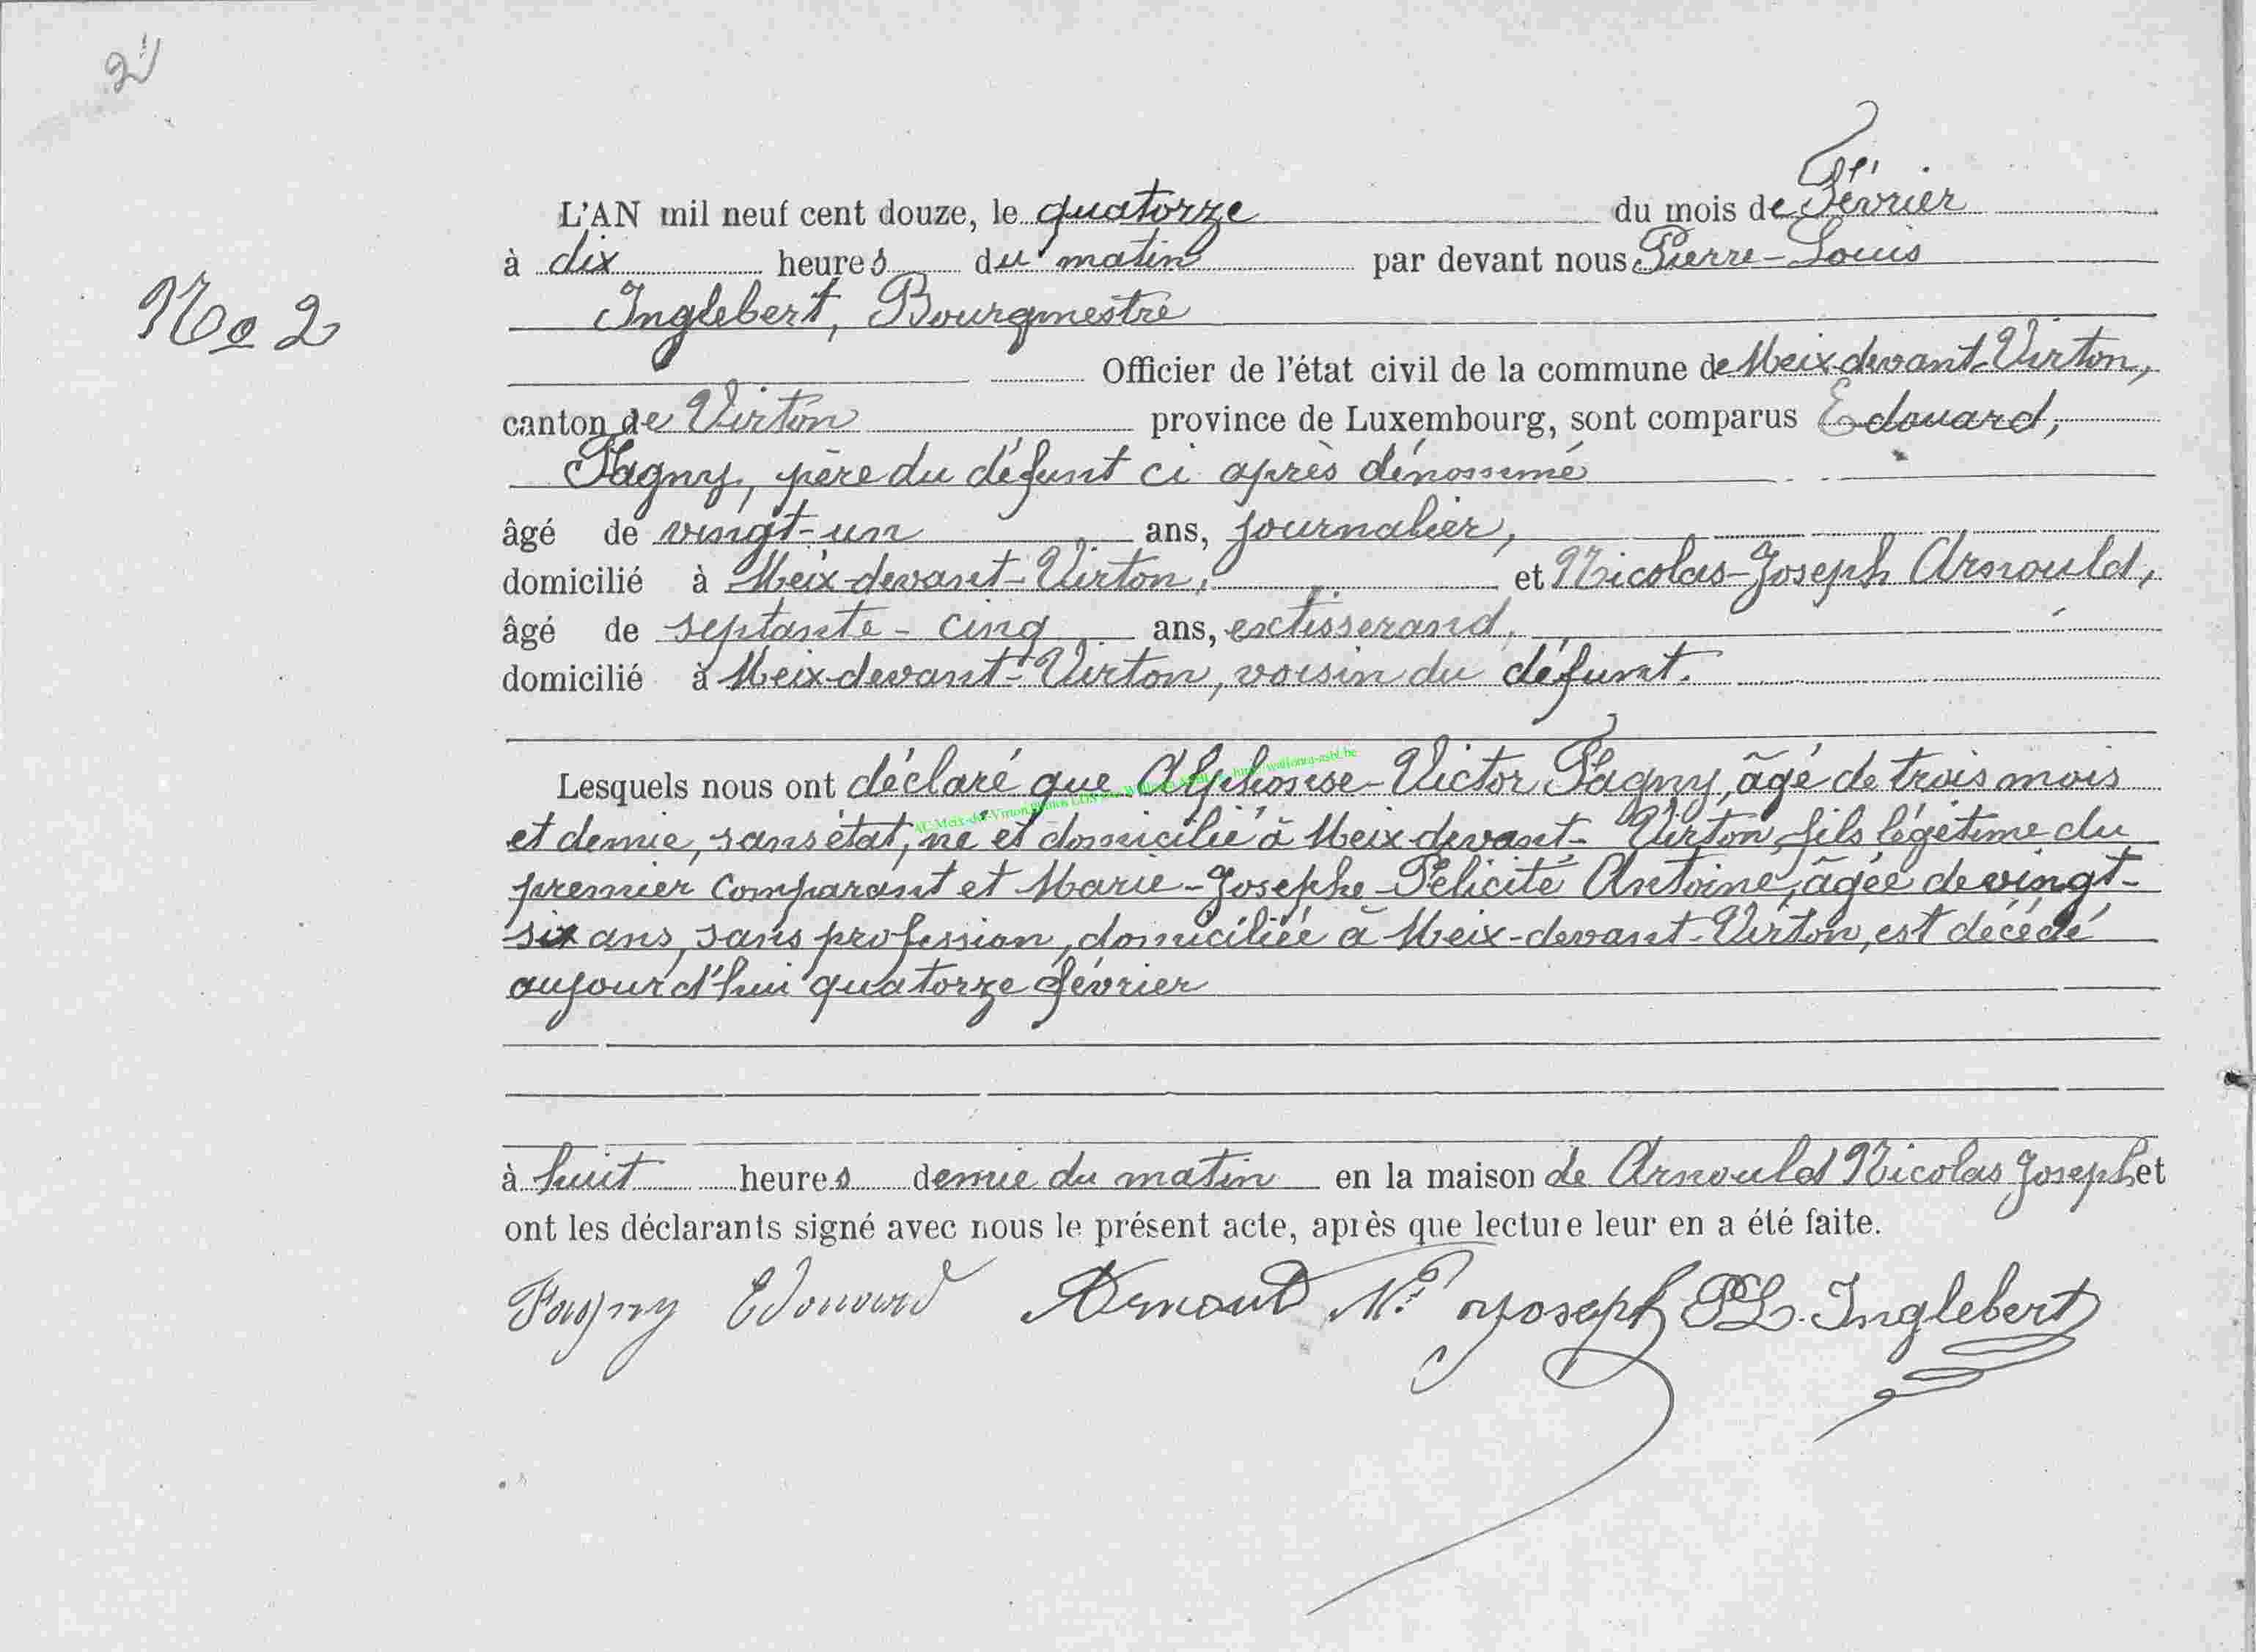 2
L'AN mil neuf cent douze, le quatorze du mois de Février
à dix heures du matin par devant nous Pierre-Louis
No 2
Inglebert, Bourgmestre
Officier de l'état civil de la commune de Meix-devant-Virton,
canton de Virton province de Luxembourg, sont comparus Edouard,
Fagny, père du défunt ci après dénommé
âgé de vingt-un ans, journalier,
domicilié à Meix-devant-Virton, et Nicolas-Joseph Arnould,
âgé de septante-cinq ans, ex tisserand,
domicilié à Meix-devant-Virton, voisin du défunt.
Lesquels nous ont déclaré que Alphonse-Victor Fagny, âgé de trois mois
et demie, sans état, né et domicilié à Meix devant-Virton, fils légetime du
premier comparant et Marie-Josephe-Félicité Antoine, âgée de vingt-
six ans, sans profession, domiciliée à Meix-devant-Virton, est décédé
aujourd'hui quatorze février
à huit heures demie du matin en la maison de Arnould Nicolas Joseph et
ont les déclarants signé avec nous le présent acte, après que lecture leur en a été faite.
Fagny Edouard Arnould Nas Joseph PL. Inglebert